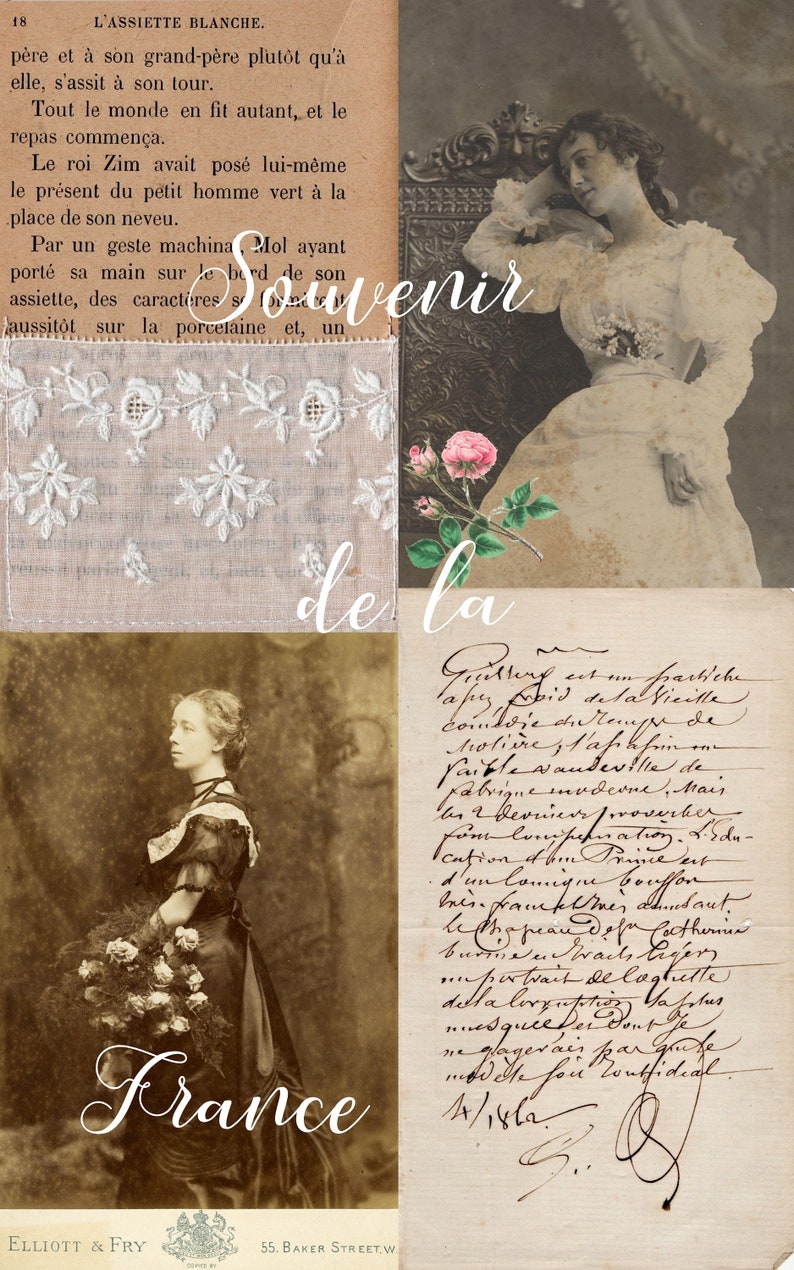 18 L'ASSIETTE BLANCHE.
père et à son grand-père plutôt qu'à
elle, s'assit à son tour.
Tout le monde en fit autant, et le
repas commença.
Le roi Zim avait posé lui-même
le présent du petit homme vert à la
place de son neveu.
Par un geste machinal, Mol ayant
porté sa main sur le bord de son
assiette, des caractères se formèrent
aussitôt sur la porcelaine et, un
Souvenir
de la
France
est un pastiche
froid de la vieille
comédie du temps de
Molière, l'assassin un
faible vaudeville de
fabrique moderne. Mais
les 2 derniers proverbes
font compensation. L'Edu-
cation d'un Prince est
d'un comique bouffon
très franc et très amusant.
le Chapeau de Ste Catherine
burine en traits légers
un portrait de coquette
de la corruption la plus
musquée et dont je
ne gagerais pas que le
modèle soit tout idéal.
4/1862
ELLIOTT & FRY
55. BAKER STREET. W.
COPIED BY